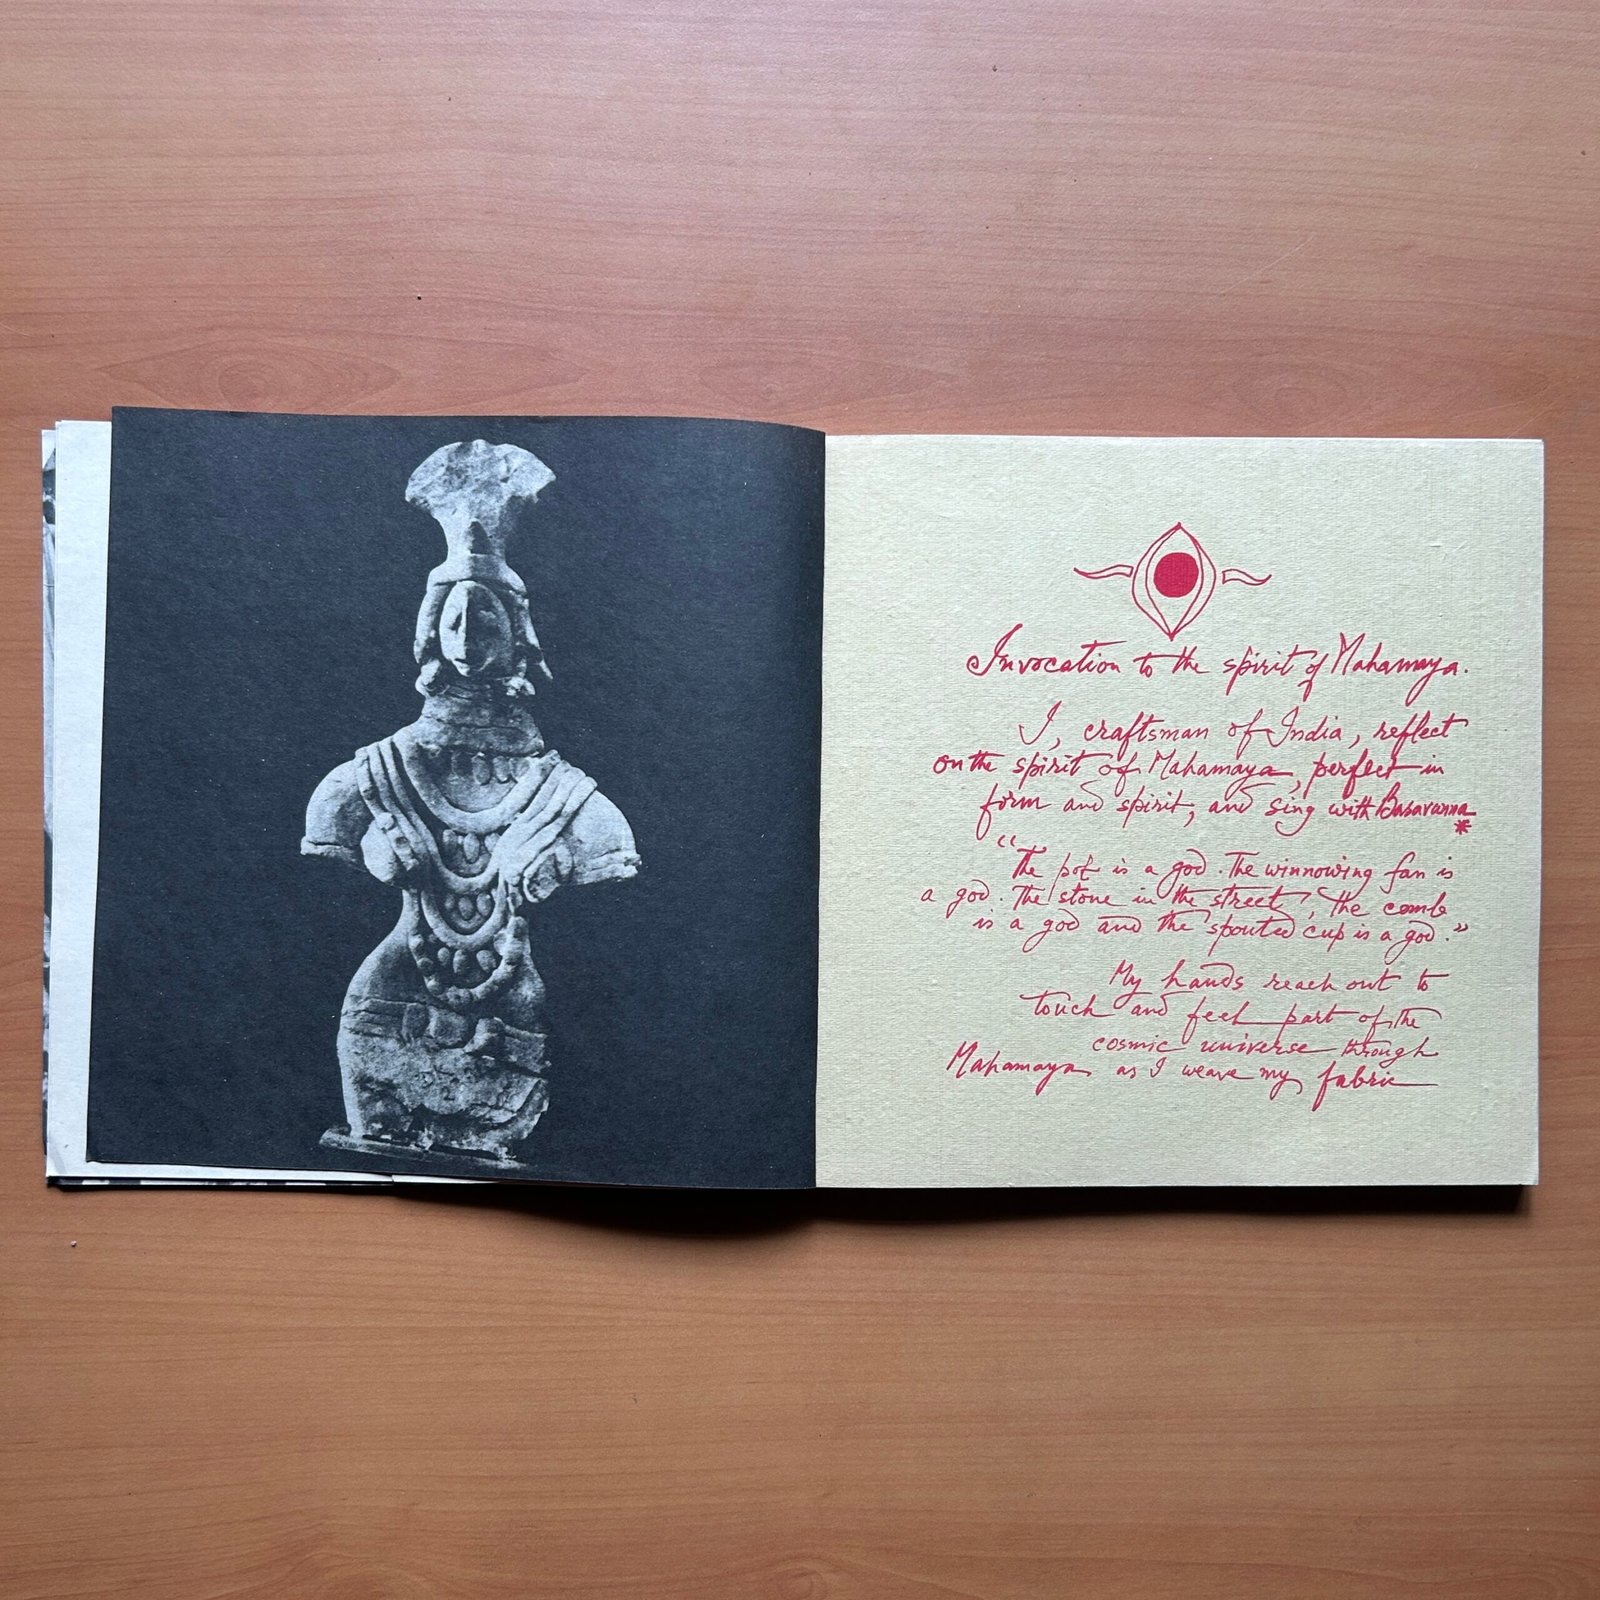 Invocation to the spirit of Mahamaya.
I, craftsman of India, reflect
on the spirit of Mahamaya, perfect in
form and spirit, and sing with Basavanna
*
"The pot is a god. The winnowing fan is
a god. The stone in the street, the comb
is a god and the spouted cup is a god."
My hands reach out to
touch and feel part of the
cosmic universe through
Mahamaya as I weave my fabric